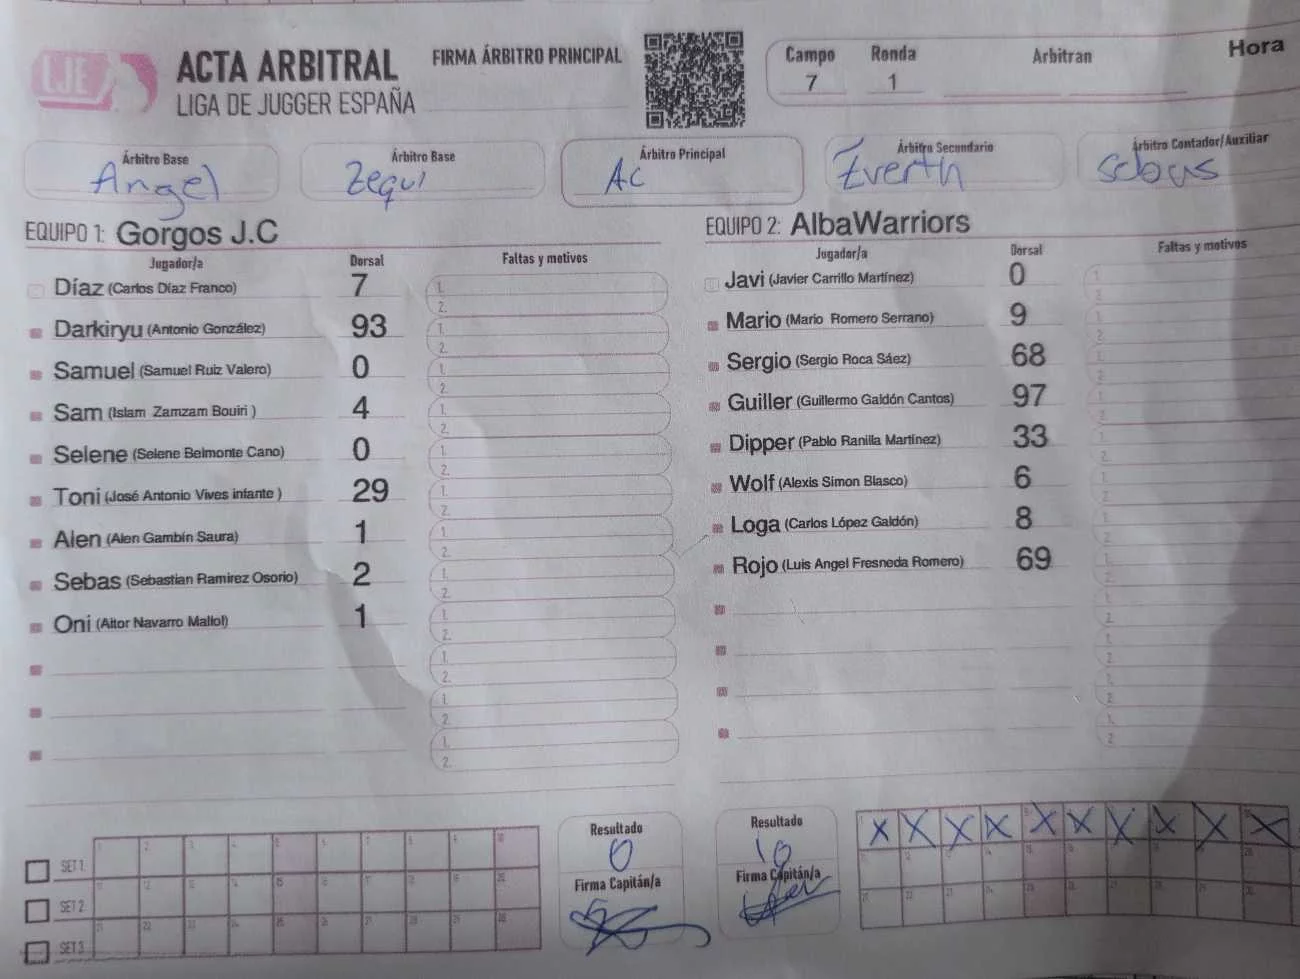 LJE
ACTA ARBITRAL
LIGA DE JUGGER ESPAÑA
FIRMA ÁRBITRO PRINCIPAL
Campo Ronda Arbitran Hora
7 1
Árbitro Base Árbitro Base Árbitro Principal Árbitro Secundario Árbitro Contador/Auxiliar
Angel Zequi AC Everth Sebas
EQUIPO 1: Gorgos J.C
Jugador/a Dorsal Faltas y motivos
Díaz (Carlos Díaz Franco) 7
Darkiryu (Antonio González) 93
Samuel (Samuel Ruiz Valero) 0
Sam (Islam Zamzam Bouiri ) 4
Selene (Selene Belmonte Cano) 0
Toni (José Antonio Vives infante ) 29
Alen (Alen Gambín Saura) 1
Sebas (Sebastian Ramirez Osorio) 2
Oni (Aitor Navarro Mallol) 1
EQUIPO 2: AlbaWarriors
Jugador/a Dorsal Faltas y motivos
Javi (Javier Carrillo Martínez) 0
Mario (Mario Romero Serrano) 9
Sergio (Sergio Roca Sáez) 68
Guiller (Guillermo Galdón Cantos) 97
Dipper (Pablo Ranilla Martínez) 33
Wolf (Alexis Simon Blasco) 6
Loga (Carlos López Galdón) 8
Rojo (Luis Angel Fresneda Romero) 69
SET 1
SET 2
SET 3
Resultado
0
Firma Capitán/a
Resultado
10
Firma Capitán/a
X X X X X X X X X X